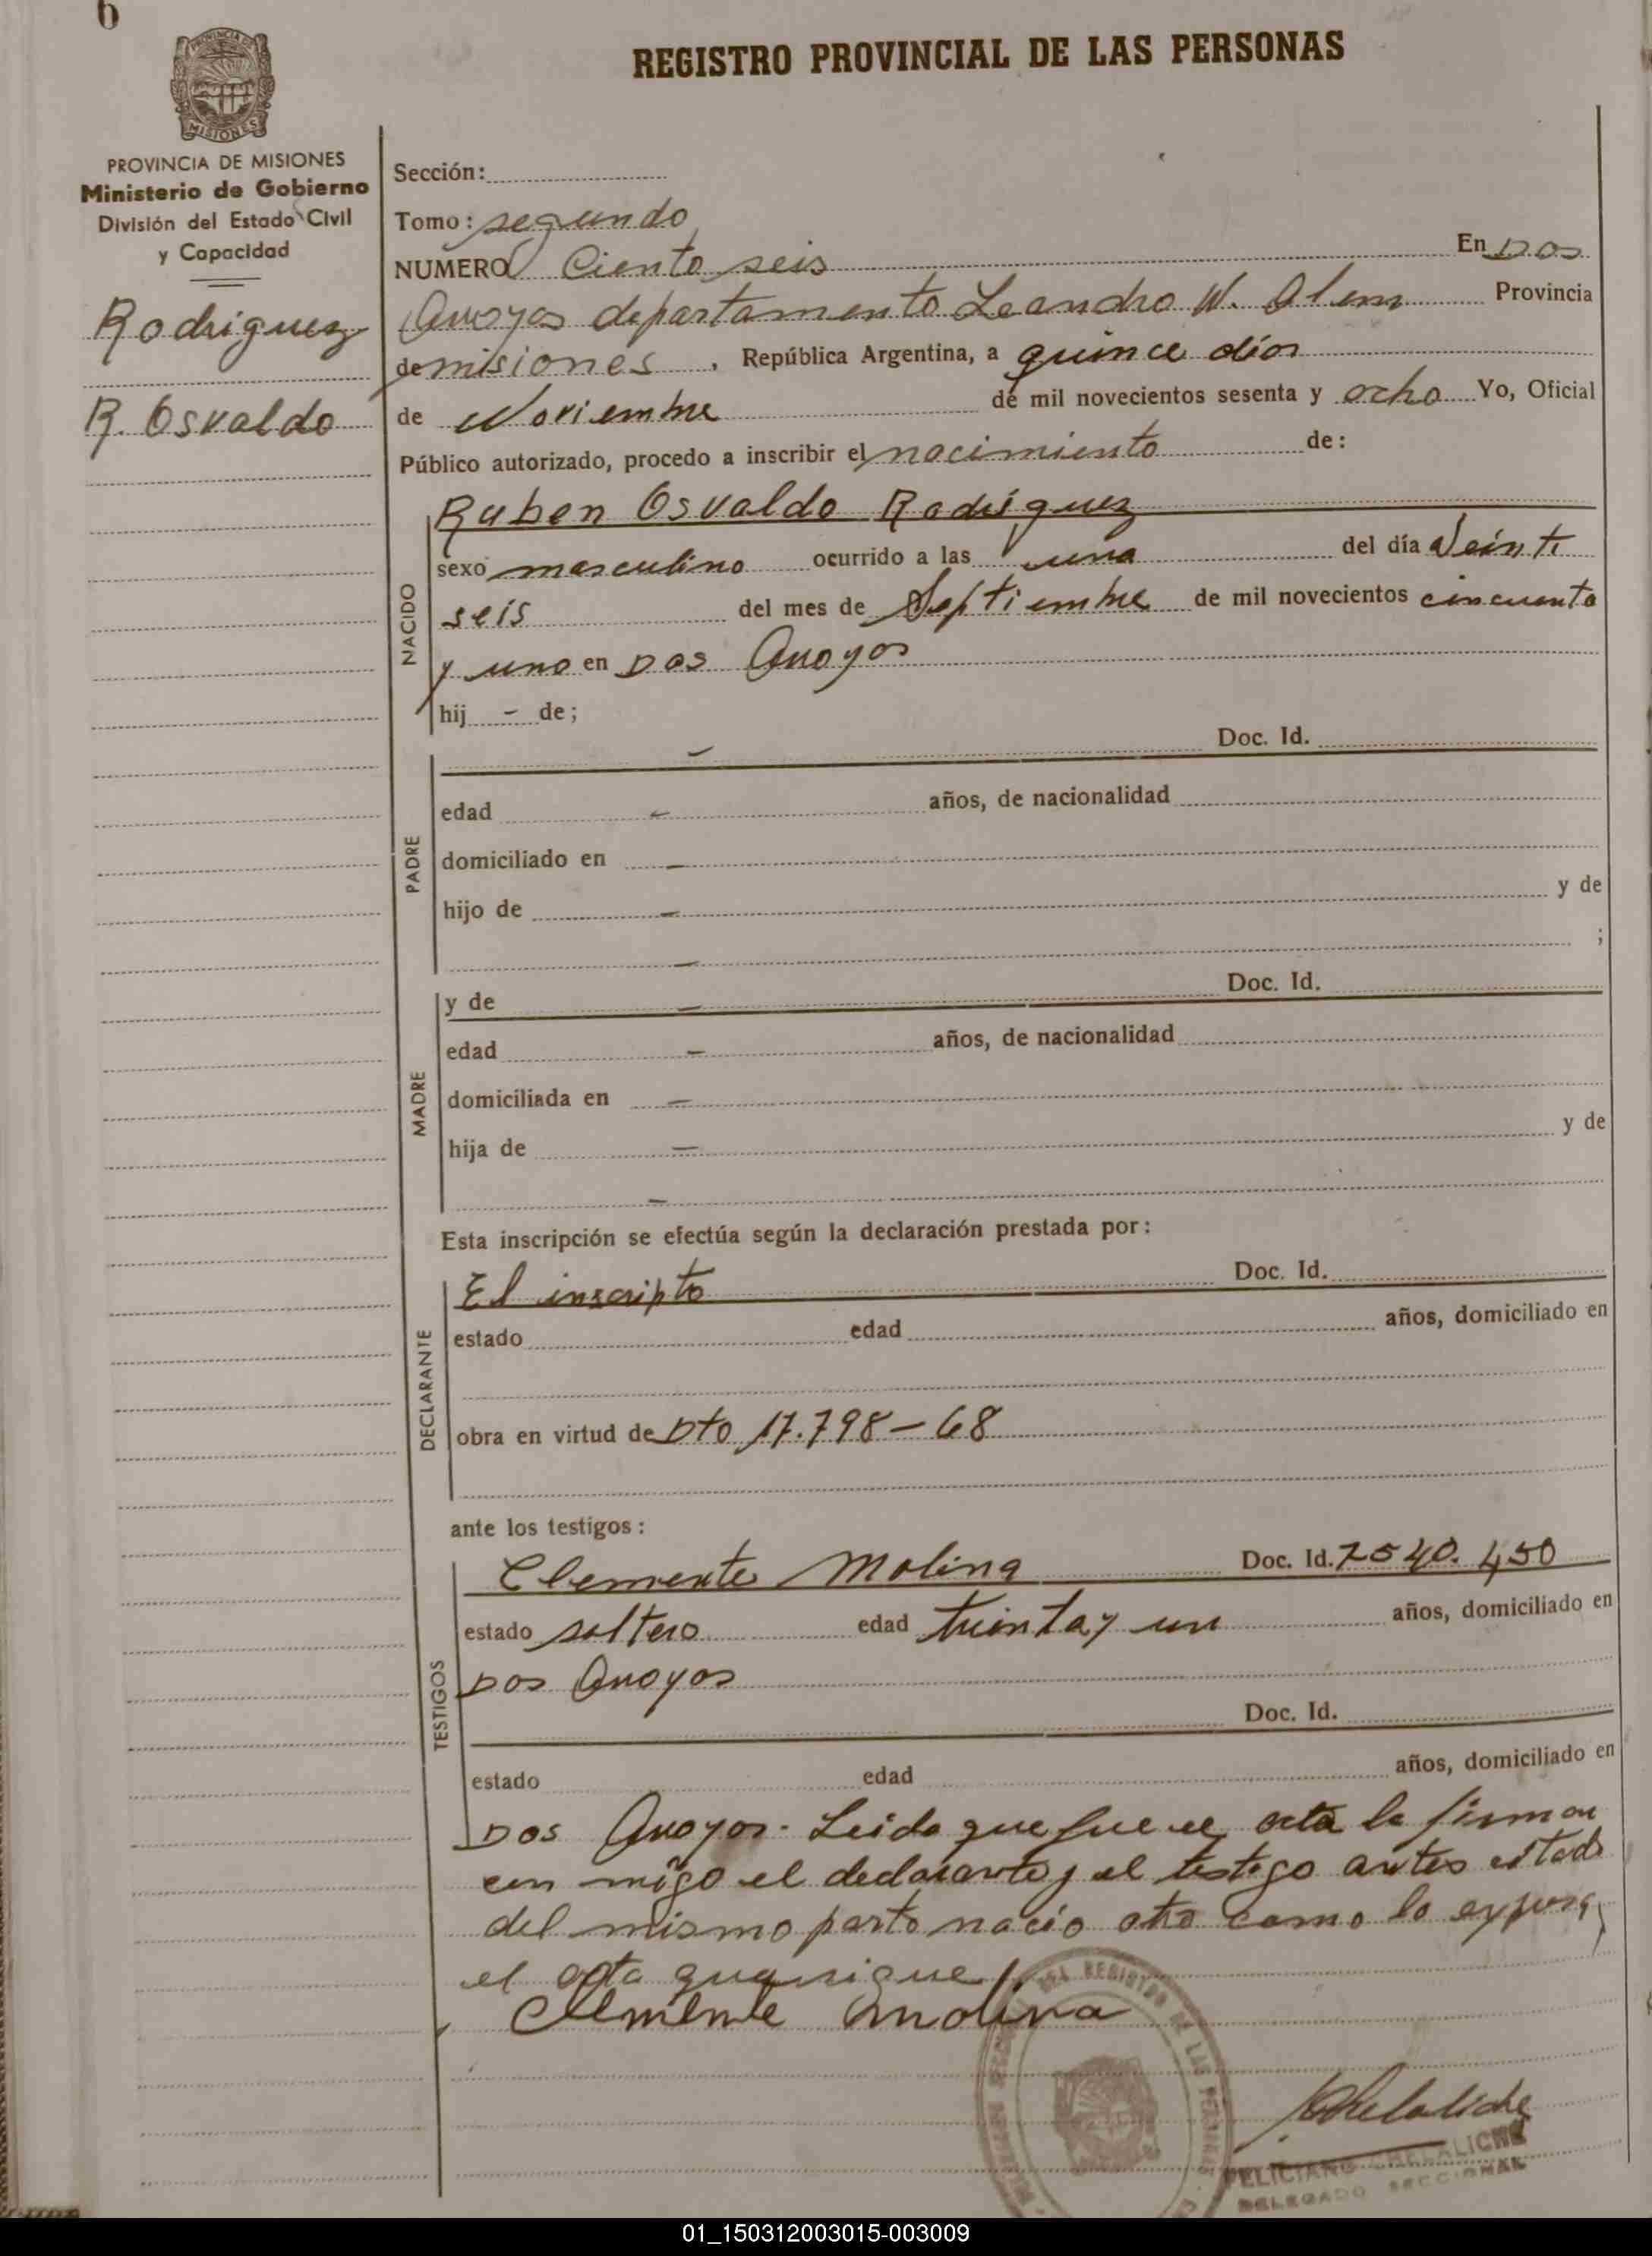 6
REGISTRO PROVINCIAL DE LAS PERSONAS
PROVINCIA DE MISIONES
Ministerio de Gobierno
División del Estado Civil
y Capacidad
Rodriguez
R. Osvaldo
Sección:
Tomo: segundo
NUMERO Ciento seis En Dos
Arroyos departamento Leandro N. Alem Provincia
de misiones, República Argentina, a quince días
de Noviembre de mil novecientos sesenta y ocho Yo, Oficial
Público autorizado, procedo a inscribir el nacimiento de:
NACIDO
Ruben Osvaldo Rodríguez
sexo masculino ocurrido a las una del día Veinti
seis del mes de Septiembre de mil novecientos cincuenta
y uno en Dos Arroyos
hij - de;
PADRE
- Doc. Id.
edad - años, de nacionalidad
domiciliado en -
hijo de - y de
- ;
MADRE
y de - Doc. Id.
edad - años, de nacionalidad
domiciliada en -
hija de - y de
-
Esta inscripción se efectúa según la declaración prestada por:
DECLARANTE
El inscripto Doc. Id.
estado edad años, domiciliado en
obra en virtud de Dto 17.798-68
ante los testigos:
TESTIGOS
Clemente Molina Doc. Id. 7540.450
estado soltero edad treinta y un años, domiciliado en
Dos Arroyos
Doc. Id.
estado edad años, domiciliado en
Dos Arroyos. Leida que fue el acta la firman
con migo el declarante y el testigo antes citado
del mismo parto nacio otro como lo expresa
el acta que sigue
Clemente Molina
REGISTRO DE LAS PERSONAS
MISIONES
FELICIANO CHELALICHE
DELEGADO SECCIONAL
01_150312003015-003009